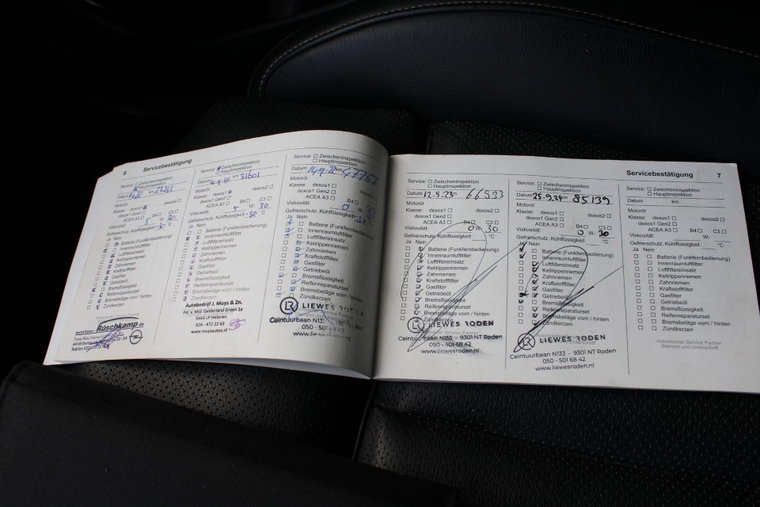 6 Servicebestätigung
Service: Zwischeninspektion
Hauptinspektion
Datum
Motoröl
Klasse: dexos1
dexos1 Gen2
ACEA A3
Viskosität
Gefrierschutz, Kühlflüssigkeit
Ja Nein
Batterie (Funkfernbedienung)
Innenraumluftfilter
Luftfiltereinsatz
Keilrippenriemen
Zahnriemen
Kraftstofffilter
Gasfilter
Getriebeöl
Bremsflüssigkeit
Reifenreparaturset
Bremsbeläge vorn / hinten
Zündkerzen
Raschkamp.de
Service: Zwischeninspektion
Hauptinspektion
Datum km 31601
Motoröl
Klasse: dexos1 dexos2
dexos1 Gen2
ACEA A3 B4 C3
Viskosität 5 W- 30
Gefrierschutz, Kühlflüssigkeit -30 °C
Ja Nein
Batterie (Funkfernbedienung)
Innenraumluftfilter
Luftfiltereinsatz
Keilrippenriemen
Zahnriemen
Kraftstofffilter
Gasfilter
Getriebeöl
Bremsflüssigkeit
Reifenreparaturset
Bremsbeläge vorn / hinten
Zündkerzen
Autobedrijf J. Muys & Zn.
026 - 472 22 63
www.muysautos.nl
Service: Zwischeninspektion
Hauptinspektion
Datum km 47761
Motoröl
Klasse: dexos1 dexos2
dexos1 Gen2
ACEA A3 B4 C3
Viskosität 0 W-
Gefrierschutz, Kühlflüssigkeit °C
Ja Nein
Batterie (Funkfernbedienung)
Innenraumluftfilter
Luftfiltereinsatz
Keilrippenriemen
Zahnriemen
Kraftstofffilter
Gasfilter
Getriebeöl
Bremsflüssigkeit
Reifenreparaturset
Bremsbeläge vorn / hinten
Zündkerzen
LR LIEWES RODEN
Ceintuurbaan N133 - 9301 NT Roden
050 - 501 68 42
www.liewesroden.nl
Servicebestätigung 7
Service: Zwischeninspektion
Hauptinspektion
Datum 12.5.23 km 66933
Motoröl
Klasse: dexos1 dexos2
dexos1 Gen2
ACEA A3 B4 C3
Viskosität 0 W- 30
Gefrierschutz, Kühlflüssigkeit °C
Ja Nein
Batterie (Funkfernbedienung)
Innenraumluftfilter
Luftfiltereinsatz
Keilrippenriemen
Zahnriemen
Kraftstofffilter
Gasfilter
Getriebeöl
Bremsflüssigkeit
Reifenreparaturset
Bremsbeläge vorn / hinten
Zündkerzen
LR LIEWES RODEN
Ceintuurbaan N133 - 9301 NT Roden
050 - 501 68 42
www.liewesroden.nl
Service: Zwischeninspektion
Hauptinspektion
Datum 25-9-24 km 85139
Motoröl
Klasse: dexos1 dexos2
dexos1 Gen2
ACEA A3 B4 C3
Viskosität 0 W- 30
Gefrierschutz, Kühlflüssigkeit °C
Ja Nein
Batterie (Funkfernbedienung)
Innenraumluftfilter
Luftfiltereinsatz
Keilrippenriemen
Zahnriemen
Kraftstofffilter
Gasfilter
Getriebeöl
Bremsflüssigkeit
Reifenreparaturset
Bremsbeläge vorn / hinten
Zündkerzen
LR LIEWES RODEN
Ceintuurbaan N133 - 9301 NT Roden
050 - 501 68 42
www.liewesroden.nl
Service: Zwischeninspektion
Hauptinspektion
Datum km
Motoröl
Klasse: dexos1 dexos2
dexos1 Gen2
ACEA A3 B4 C3
Viskosität W-
Gefrierschutz, Kühlflüssigkeit °C
Ja Nein
Batterie (Funkfernbedienung)
Innenraumluftfilter
Luftfiltereinsatz
Keilrippenriemen
Zahnriemen
Kraftstofffilter
Gasfilter
Getriebeöl
Bremsflüssigkeit
Reifenreparaturset
Bremsbeläge vorn / hinten
Zündkerzen
Autorisierter Service Partner
Stempel und Unterschrift